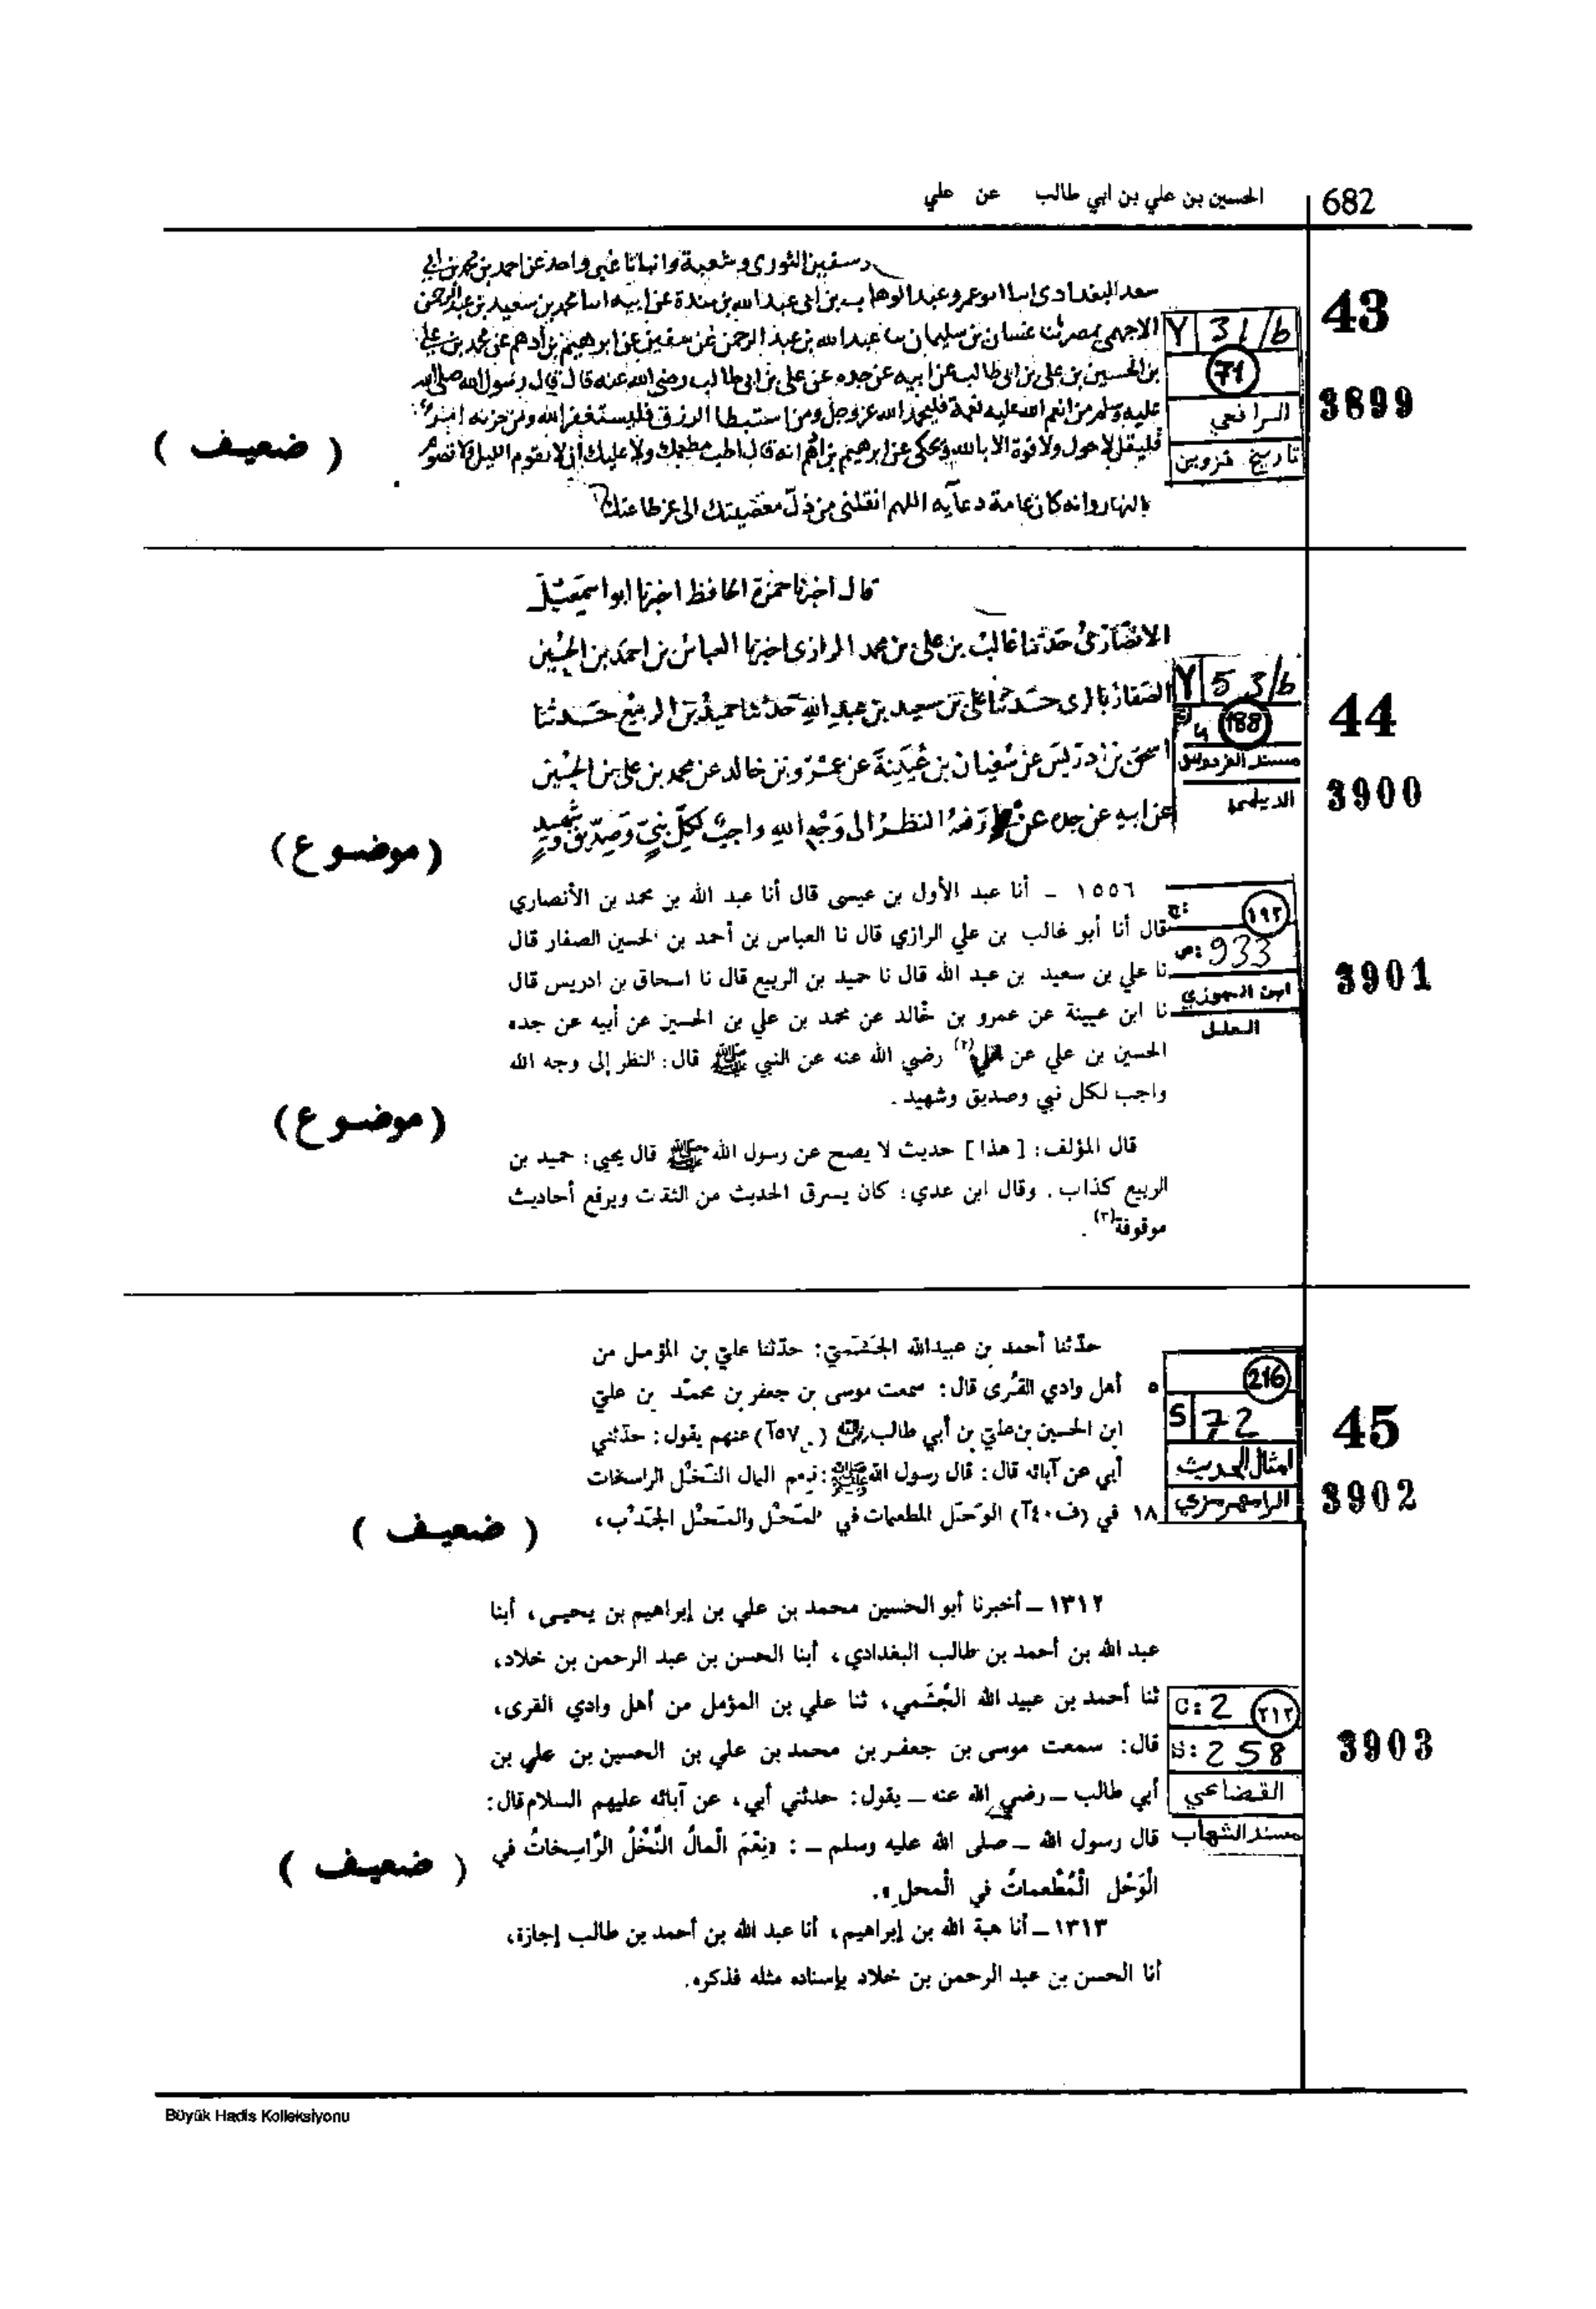 الحسين بن علي بن ابي طالب عن علي
682
وسفين الثورى وشعبة وانبانا غير واحد عن احمد بن محمد بن ابي
سعد البغدادى انبا ابو عمرو عبد الوهاب بن ابى عبد الله بن مندة عن ابيه انبا محمد بن سعيد بن عبد الرحمن
بمصر ثنا غسان بن سليمان ثنا عبد الله بن عبد الرحمن عن سفين عن ابرهيم بن ادهم عن محمد بن علي
بن الحسين بن على بن ابى طالب عن ابيه عن جده عن على بن ابى طالب رضى الله عنه قال قال رسول الله صلى الله
عليه وسلم من انعم الله عليه نعمة فليحمد الله عز وجل ومن استبطا الرزق فليستغفر الله ومن حزنه امر
فليقل لا حول ولا قوة الا بالله ويحكى عن ابرهيم بن ادهم انه قال اطب مطعمك ولا عليك ان لا تقوم الليل ولا تصوم
بالنهار وانه كان عامة دعآيه اللهم انقلنى من ذل معصيتك الى عز طاعتك
Y 31/b
71
الرافعي
تاريخ قزوين
43
3899
( ضعيف )
قال اخبرنا حمزة الحافظ اخبرنا ابو اسمعيل
الانصارى حدثنا غالب بن على بن محمد الرازى اخبرنا العباس بن احمد بن الحسين
الصفار بالرى حدثنا على بن سعيد بن عبد الله حدثنا حميد بن الربيع حدثنا
اسحق بن ادريس عن سفيان بن عيينة عن عمرو بن خالد عن محمد بن على بن الحسين
عن ابيه عن جده عن رفعه النظر الى وجه الله واجب لكل نبي وصديق وشهيد
Y 53/b
188
مسند الفردوس
الديلمي
44
3900
(موضوع)
١٥٥٦ - أنا عبد الأول بن عيسى قال أنا عبد الله بن محمد بن الأنصاري
قال أنا أبو غالب بن علي الرازي قال نا العباس بن أحمد بن الحسين الصفار قال
نا علي بن سعيد بن عبد الله قال نا حميد بن الربيع قال نا اسحاق بن ادريس قال
نا ابن عيينة عن عمرو بن خالد عن محمد بن علي بن الحسين عن أبيه عن جده
الحسين بن علي عن علي(٢) رضي الله عنه عن النبي ﷺ قال: النظر إلى وجه الله
واجب لكل نبي وصديق وشهيد .
ج: ١٩٢
ص: 933
ابن الجوزي
العلل
3901
(موضوع)
قال المؤلف: [ هذا ] حديث لا يصح عن رسول الله ﷺ قال يحيى: حميد بن
الربيع كذاب . وقال ابن عدي: كان يسرق الحديث من الثقت ويرفع أحاديث
موقوفة(٣) .
حدّثنا أحمد بن عبيدالله الجُشَمي: حدّثنا علي بن المؤمل من
٥ أهل وادي القُرى قال: سمعت موسى بن جعفر بن محمّد بن عليّ
ابن الحسين بن عليّ بن أبي طالب رضي الله (س ٥٧آ) عنهم يقول: حدّثني
أبي عن آبائه قال: قال رسول الله ﷺ: نِعم المال النّخل الراسخات
١٨ في (ف ٤٠آ) الوَحَل المطعمات في المَحْل والمَحْل الجَدْب،
216
S 72
امثال الحديث
الرامهرمزي
45
3902
( ضعيف )
١٣١٢ – أخبرنا أبو الحسين محمد بن علي بن إبراهيم بن يحيى، أبنا
عبد الله بن أحمد بن طالب البغدادي، أبنا الحسن بن عبد الرحمن بن خلاد،
ثنا أحمد بن عبيد الله الجُشَمي، ثنا علي بن المؤمل من أهل وادي القرى،
قال: سمعت موسى بن جعفر بن محمد بن علي بن الحسين بن علي بن
أبي طالب – رضي الله عنه – يقول: حدثني أبي، عن آبائه عليهم السلام قال:
قال رسول الله – صلى الله عليه وسلم – : «نِعْمَ الْمالُ النَّخْلُ الرَّاسِخاتُ في
الْوَحْلِ الْمُطْعِماتُ في الْمحل».
C: 2 ٢١٢
S: 258
القضاعي
مسند الشهاب
3903
( ضعيف )
١٣١٣ – أنا هبة الله بن إبراهيم، أنا عبد الله بن أحمد بن طالب إجازة،
أنا الحسن بن عبد الرحمن بن خلاد بإسناده مثله فذكره.
Büyük Hadis Kolleksiyonu